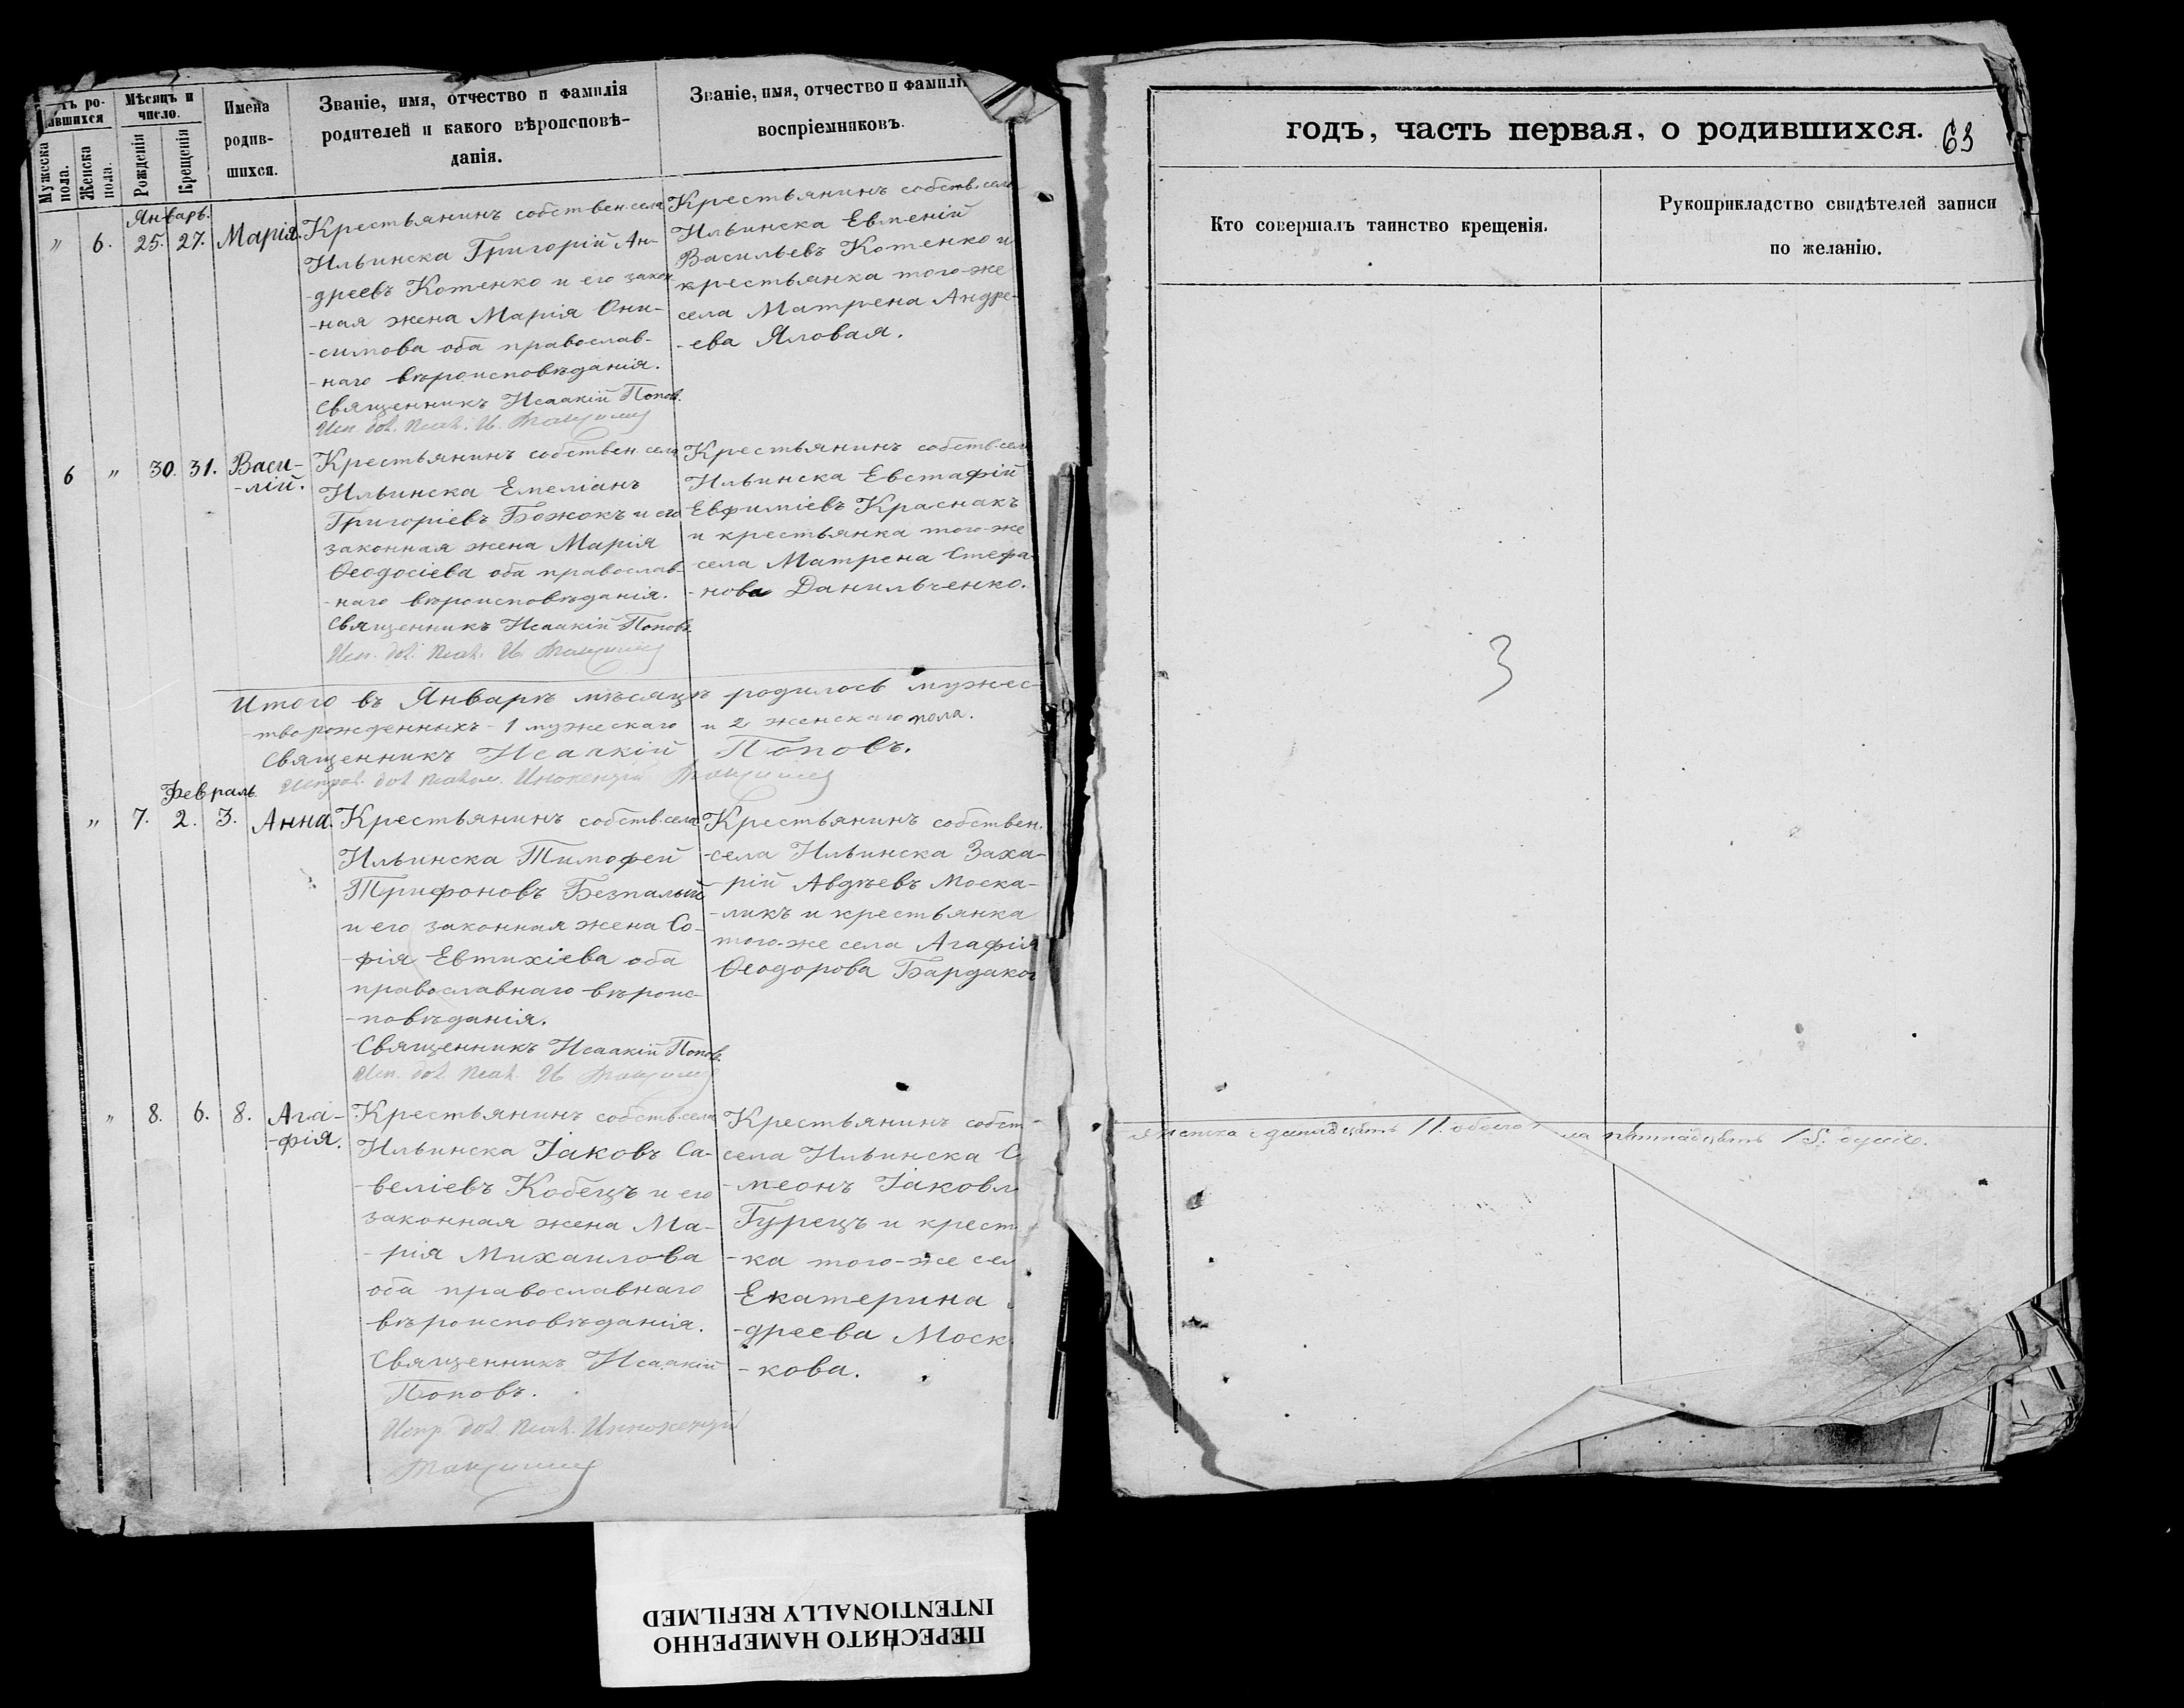 ть ро-
ившихся
Мѣсяцъ и
число.
Мужеска
пола.
Женска
пола.
Рожденія
Крещенія
Имена
родив-
шихся.
Званіе, имя, отчество и фамилія
родителей и какого вѣроисповѣ-
данія.
Званіе, имя, отчество и фамилі
воспріемниковъ.
Январь.
" 6. 25. 27. Марія.
Крестьянинъ собствен. села
Ильинска Григорій Ан-
-дреевъ Котенко и его закон
-ная жена Марія Они-
-симова оба православ-
-наго вѣроисповѣданія.
Священникъ Исаакій Попов.
Исп. дол. Псал. И.
Крестьянинъ собств. села
Ильинска Евмений
Васильевъ Котенко и
крестьянка того-же
села Матрена Андре-
-ева Яловая.
6 " 30. 31. Васи-
-лій.
Крестьянинъ собствен. села
Ильинска Емеліанъ
Григоріевъ Божокъ и его
законная жена Марія
Ѳеодосіева оба православ-
-наго вѣроисповѣданія.
Священникъ Исаакій Поповъ.
Исп. дол. Псал. И.
Крестьянинъ собств. села
Ильинска Евстафій
Евфиміевъ Краснакъ
и крестьянка того-же
села Матрена Стефа-
-нова Данильченко.
Итого въ Январѣ мѣсяцѣ родилось
-рожденныхъ - 1 мужескаго и 2 женскаго пола.
Священникъ Исаакій Поповъ.
дол. Псалом.
Февраль.
" 7. 2. 3. Анна.
Крестьянинъ собств. села
Ильинска Тимофей
Трифоновъ Безпалый
и его законная жена Со-
-фія Евтихіева оба
православнаго вѣроис-
-повѣданія.
Священникъ Исаакій Попов.
Исп. дол. Псал. И
Крестьянинъ собствен.
-села Ильинска Заха-
-рій Авдѣевъ Моска-
-ликъ и крестьянка
того-же села Агафія
Ѳеодорова Бардаков
" 8. 6. 8. Ага-
-фія.
Крестьянинъ собств. села
Ильинска Іаковъ Са-
-веліевъ Кобецъ и его
законная жена Ма-
-рія Михаилова
оба православнаго
вѣроисповѣданія.
Священникъ Исаакій
Поповъ.
Испр. дол. Псал.
Крестьянинъ собст
села Ильинска С
-меонъ Іаковл
Гурецъ и крест
-ка того-же сел
Екатерина
-дреева Моск
-кова.
годъ, часть первая, о родившихся. 63
Кто совершалъ таинство крещенія.
Рукоприкладство свидѣтелей записи
по желанію.
3
11. обоего ла пятнадцать 15. душъ.
ПЕРЕСНЯТО НАМЕРЕННО
INTENTIONALLY REFILMED